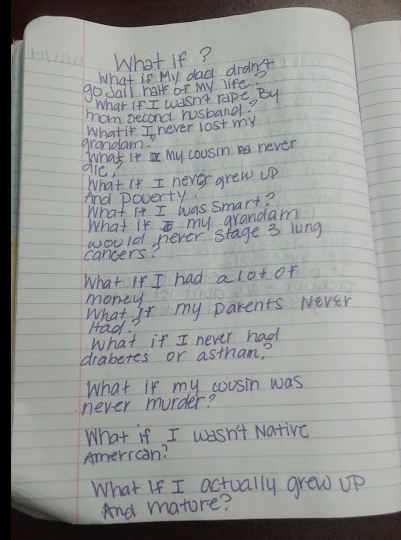 What if ?
What if My dad didn't
go Jail half of my life?
What if I wasn't rape By
mom second husband?
What if I never lost my
grandam?
What if my cousin never
die?
What if I never grew up
And poverty.
What if I was smart?
What if my grandam
would never stage 3 lung
cancers?
What if I had a lot of
money
What if my parents Never
Had?
What if I never had
diabetes or astham?
What if my cousin was
never murder?
What if I wasn't Native
American?
What If I actually grew up
And mature?